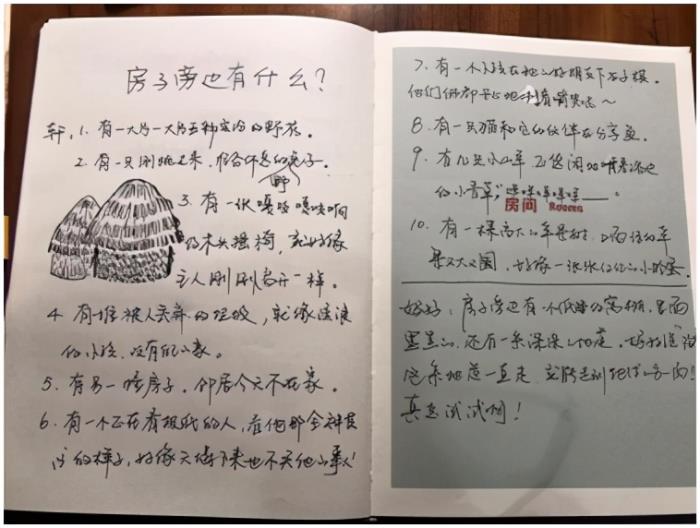 房子旁边有什么？
轩，1. 有一大片一大片五种颜色的野花。
2. 有一只刚跳过来，
野
3. 有一张嘎吱嘎吱响
的木头摇椅，就好像
主人刚刚离开一样。
4. 有一堆被人丢弃的垃圾，就像流浪
的小孩，没有自己的家。
5. 有另一幢房子，邻居今天不在家。
6. 有一个正在看报纸的人，看他那全神贯
注的样子，好像天塌下来也不关他的事！
7. 有一个小孩在和他的好朋友下石子棋。
他们俩都开心地
8. 有一只猫和它的伙伴在分享鱼。
9. 有几只小山羊正悠闲地啃着路边
的小青草，咩咩咩咩咩——。
房间 Rooms
10. 有一棵高大的苹果树，上面结的苹
果又大又圆，好像一张张红红的小脸蛋。
妈妈：房子旁边有个低矮的窝棚，里面
黑黑的，还有一条深深的地道，
这条地道一直走，
真想试试啊！